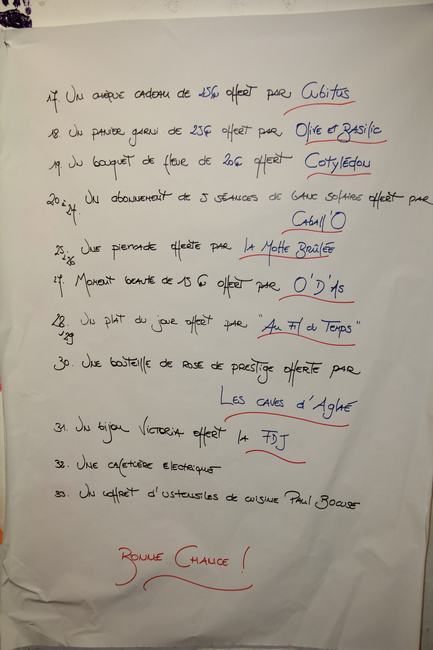 17. Un chèque cadeau de 25€ offert par Cubitus
18. Un panier garni de 25€ offert par Olive et Basilic
19. Un bouquet de fleur de 20€ offert Cotylédon
20 à 24. Un abonnement de 5 séances de banc solaire offert par
Caball'O
25, 26. Une pierrade offerte par La Motte Brûlée
27. Moment beauté de 15€ offert par O'D'As
28, 29. Un plat du jour offert par "Au Fil du Temps"
30. Une bouteille de rose de prestige offerte par
Les caves d'Aglaé
31. Un bijou Victoria offert la FDJ
32. Une cafetière electrique
33. Un coffret d'ustensiles de cuisine Paul Bocuse
Bonne Chance !